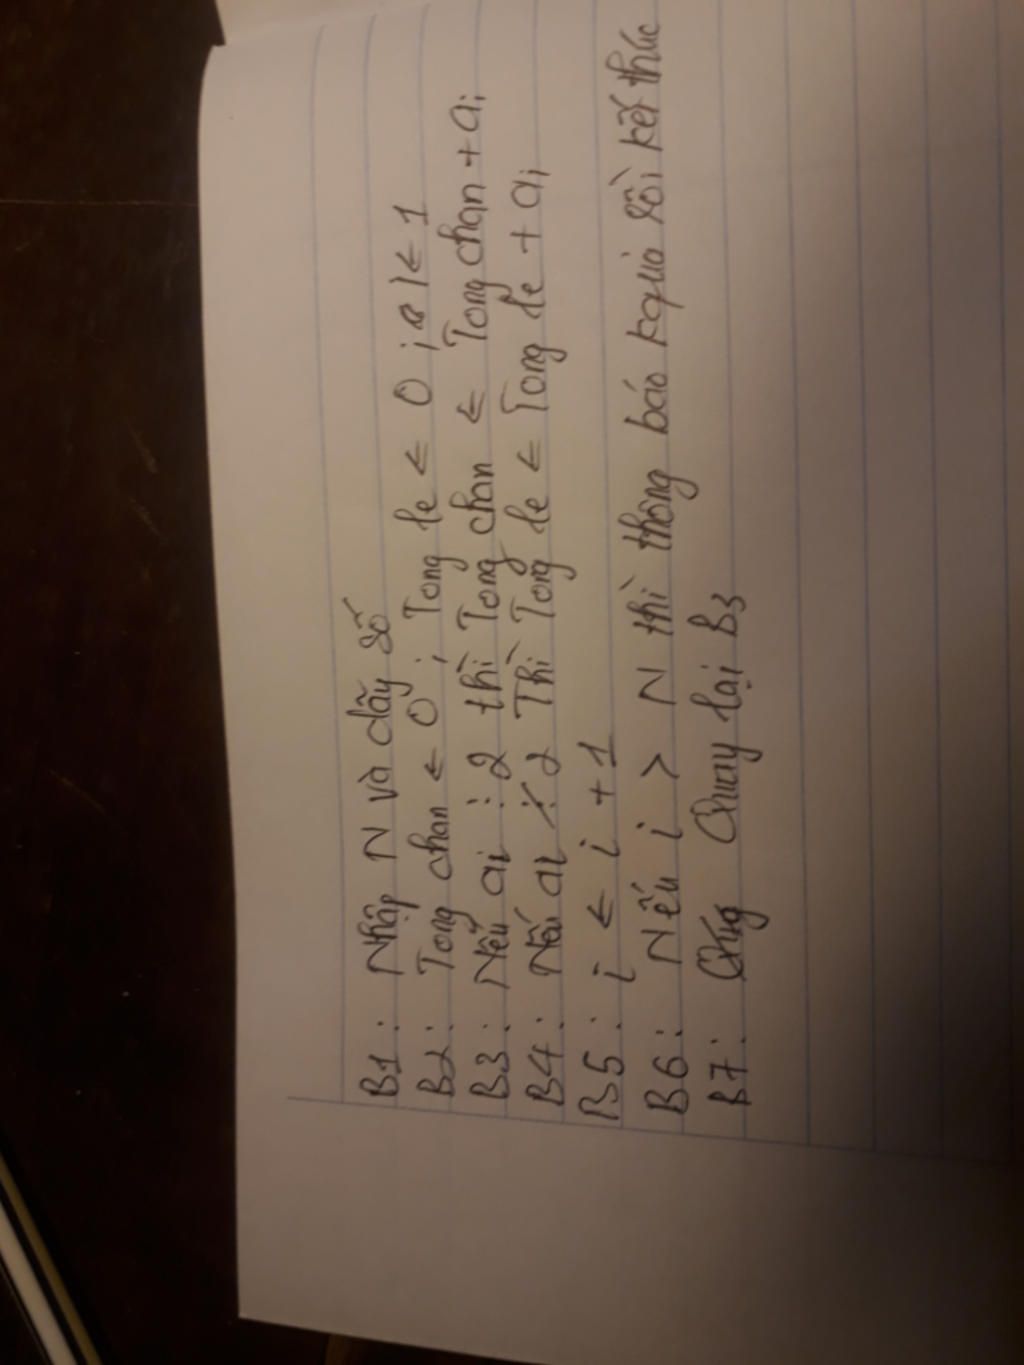 B1: Nhập N và dãy số
B2: Tong chan ← 0 ; Tong le ← 0 ; i ← 1
B3: Nếu ai ⋮ 2 thì Tong chan ← Tong chan + ai
B4: Nếu ai ⋮̸ 2 Thì Tong le ← Tong le + ai
B5: i ← i + 1
B6: Nếu i > N thì thông báo kquả rồi kết thúc
B7: Quay lại B3